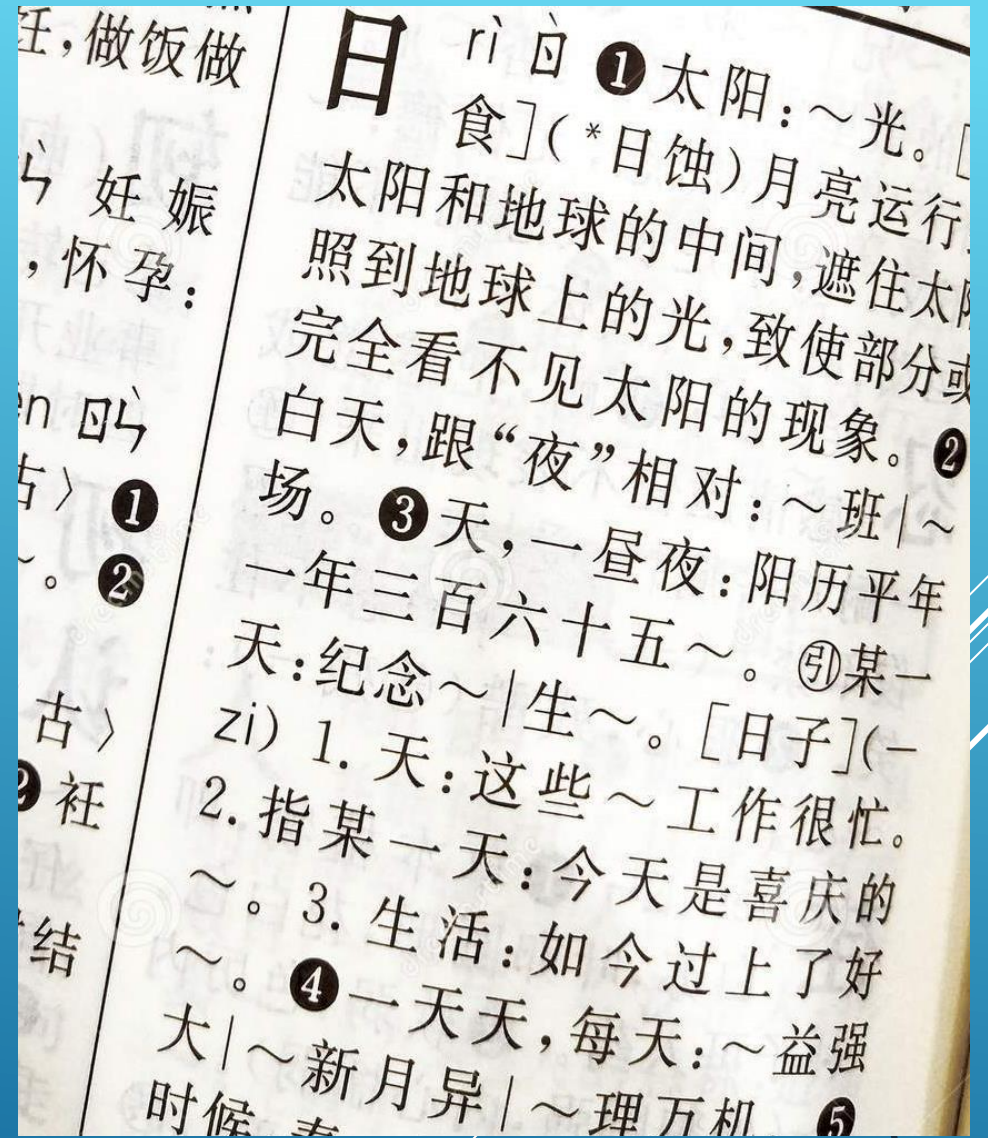 妊,做饭做
ㄣˋ 妊娠
,怀孕:
en ㄖㄣˋ
古〉❶
~。❷
古〉
衽
结
日 rì ㄖˋ ❶太阳:~光。[
食](*日蚀)月亮运行
太阳和地球的中间,遮住太阳
照到地球上的光,致使部分或
完全看不见太阳的现象。❷
白天,跟“夜”相对:~班|~
场。❸天,一昼夜:阳历平年
一年三百六十五~。㊁某一
天:纪念~|生~。[日子](-
zi) 1. 天:这些~工作很忙。
2. 指某一天:今天是喜庆的
~。3. 生活:如今过上了好
~。❹一天天,每天:~益强
大|~新月异|~理万机 ❺
时候